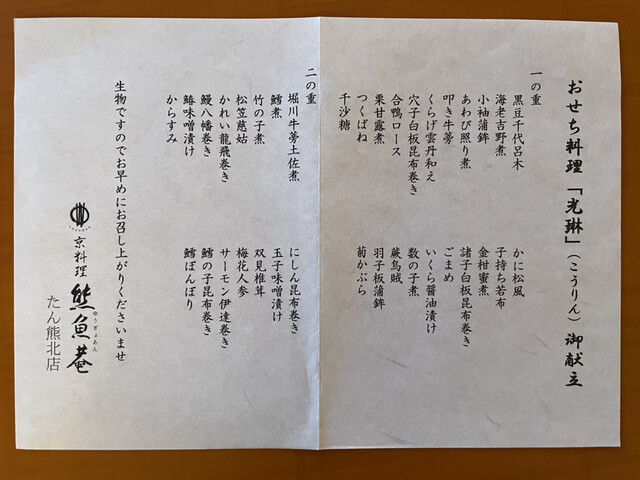 おせち料理「光琳」(こうりん) 御献立
一の重
黒豆千代呂木
海老吉野煮
小袖蒲鉾
あわび照り煮
叩き牛蒡
くらげ雲丹和え
穴子白板昆布巻き
合鴨ロース
栗甘露煮
つくばね
千沙糖
かに松風
子持ち若布
金柑蜜煮
諸子白板昆布巻き
ごまめ
いくら醤油漬け
数の子煮
蕨烏賊
羽子板蒲鉾
菊かぶら
二の重
堀川牛蒡土佐煮
鱈煮
竹の子煮
松笠慈姑
かれい龍飛巻き
鰻八幡巻き
鰆味噌漬け
からすみ
にしん昆布巻き
玉子味噌漬け
双見椎茸
梅花人参
サーモン伊達巻き
鱈の子昆布巻き
鱈ぼんぼり
生物ですのでお早めにお召し上がりくださいませ
京料理 熊魚菴
ゆうぎょあん
たん熊北店